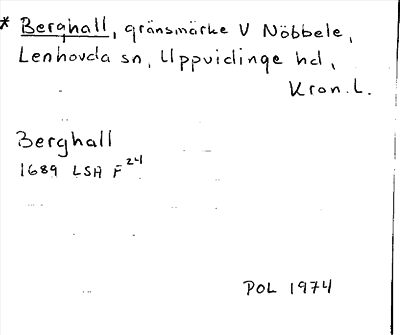 * Berghall, gränsmärke V Nöbbele,
Lenhovda sn, Uppvidinge hd,
Kron. L.
Berghall
1689 LSA F24
POL 1974